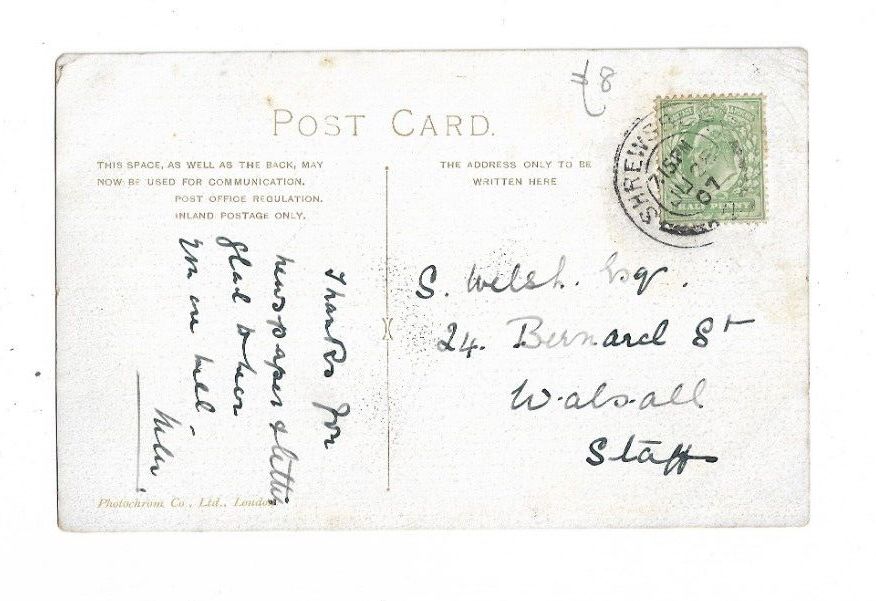 £8
POST CARD.
THIS SPACE, AS WELL AS THE BACK, MAY
NOW BE USED FOR COMMUNICATION.
POST OFFICE REGULATION.
INLAND POSTAGE ONLY.
THE ADDRESS ONLY TO BE
WRITTEN HERE
SHREWSB
7.15PM
JU
07
HALF PENNY
Thanks for
newspaper & letter
glad to hear
are well.
S. Welsh. Esq.
24. Bernard St
Walsall
Staffs
Photochrom Co., Ltd., London